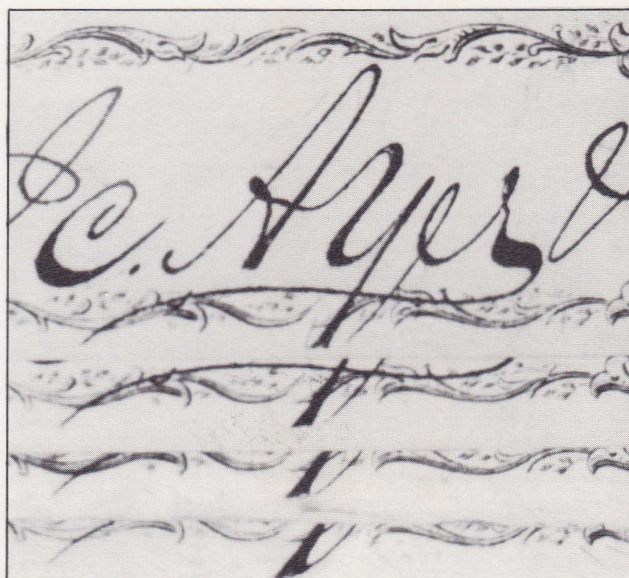 C. Ayer